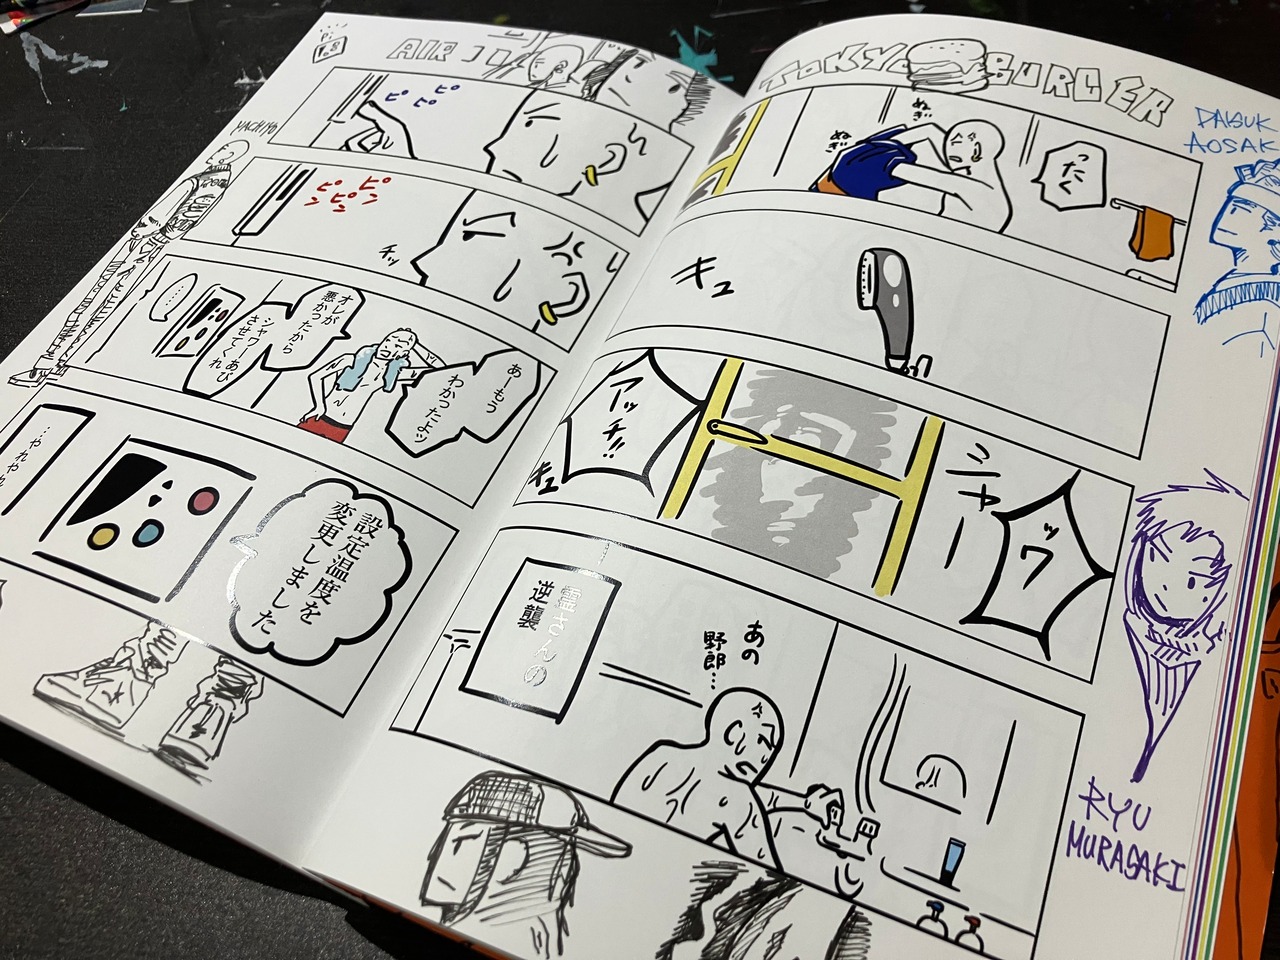 P.
108
AIR
MACHIYO
ピピピ
ピンピンピン
チッ
あーもう
わかったよッ
オレが
悪かったから
シャワーあび
させてくれ
……
設定温度を
変更しました
…やれやれ
TOKYO BURGER
ぬぎ
ぬぎ
ったく
キュ
シャー
ッワ
アッチ!!
キュ
あの
野郎…
霊さんの
逆襲
DAISUK
AOSAK
RYU
MURASAKI